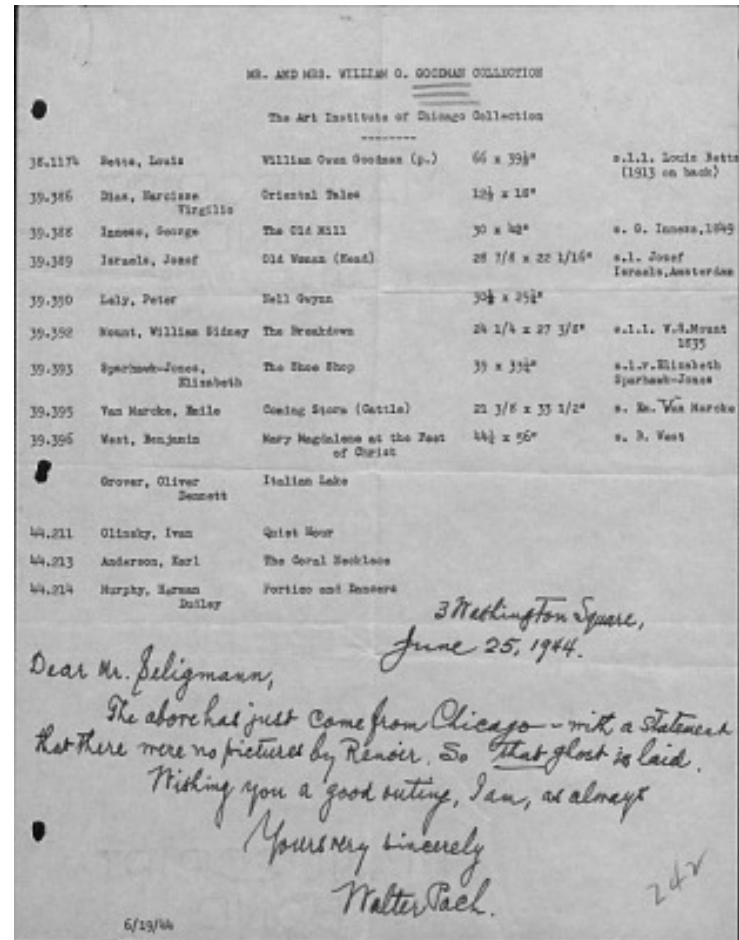 MR. AND MRS. WILLIAM O. GOODMAN COLLECTION
The Art Institute of Chicago Collection
--------
38.1174 Betts, Louis William Owen Goodman (p.) 66 x 39½" s.l.l. Louis Betts
(1913 on back)
39.386 Diaz, Narcisse Oriental Tales 12½ x 16"
Virgilio
39.388 Inness, George The Old Mill 30 x 42" s. G. Inness, 1849
39.389 Israels, Josef Old Woman (Head) 28 7/8 x 22 1/16" s.l. Josef
Israels, Amsterdam
39.390 Lely, Peter Nell Gwynn 30½ x 25¼"
39.392 Mount, William Sidney The Breakdown 24 1/4 x 27 3/8" s.l.l. W.S.Mount
1835
39.393 Sparhawk-Jones, The Shoe Shop 39 x 33¼" s.l.r.Elizabeth
Elizabeth Sparhawk-Jones
39.395 Van Marcke, Emile Coming Storm (Cattle) 21 3/8 x 33 1/2" s. Em. Van Marcke
39.396 West, Benjamin Mary Magdalene at the Feet 44½ x 56" s. B. West
of Christ
Grover, Oliver Italian Lake
Dennett
44.211 Olinsky, Ivan Quiet Hour
44.213 Anderson, Karl The Coral Necklace
44.214 Murphy, Herman Portico and Dancers
Dudley
3 Washington Square,
June 25, 1944.
Dear Mr. Seligmann,
The above has just come from Chicago – with a statement
that there were no pictures by Renoir. So that ghost is laid.
Wishing you a good outing, I am, as always
Yours very sincerely
Walter Pach.
242
6/19/44